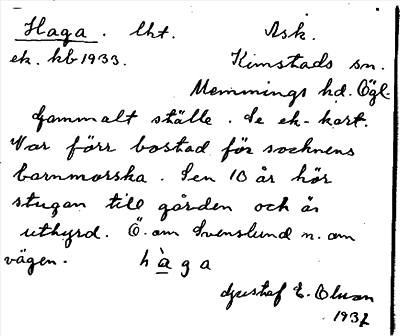 Haga. lht. Ask.
ek. kb 1933. Kimstads sn.
Memmings hd. Ögl.
Gammalt ställe. Se ek-kart.
Var förr bostad för socknens
barnmorska. Sen 10 år hör
stugan till gården och är
uthyrd. Ö. om Svenslund n. om
vägen. hàga
Gustaf E. Olsson
1937